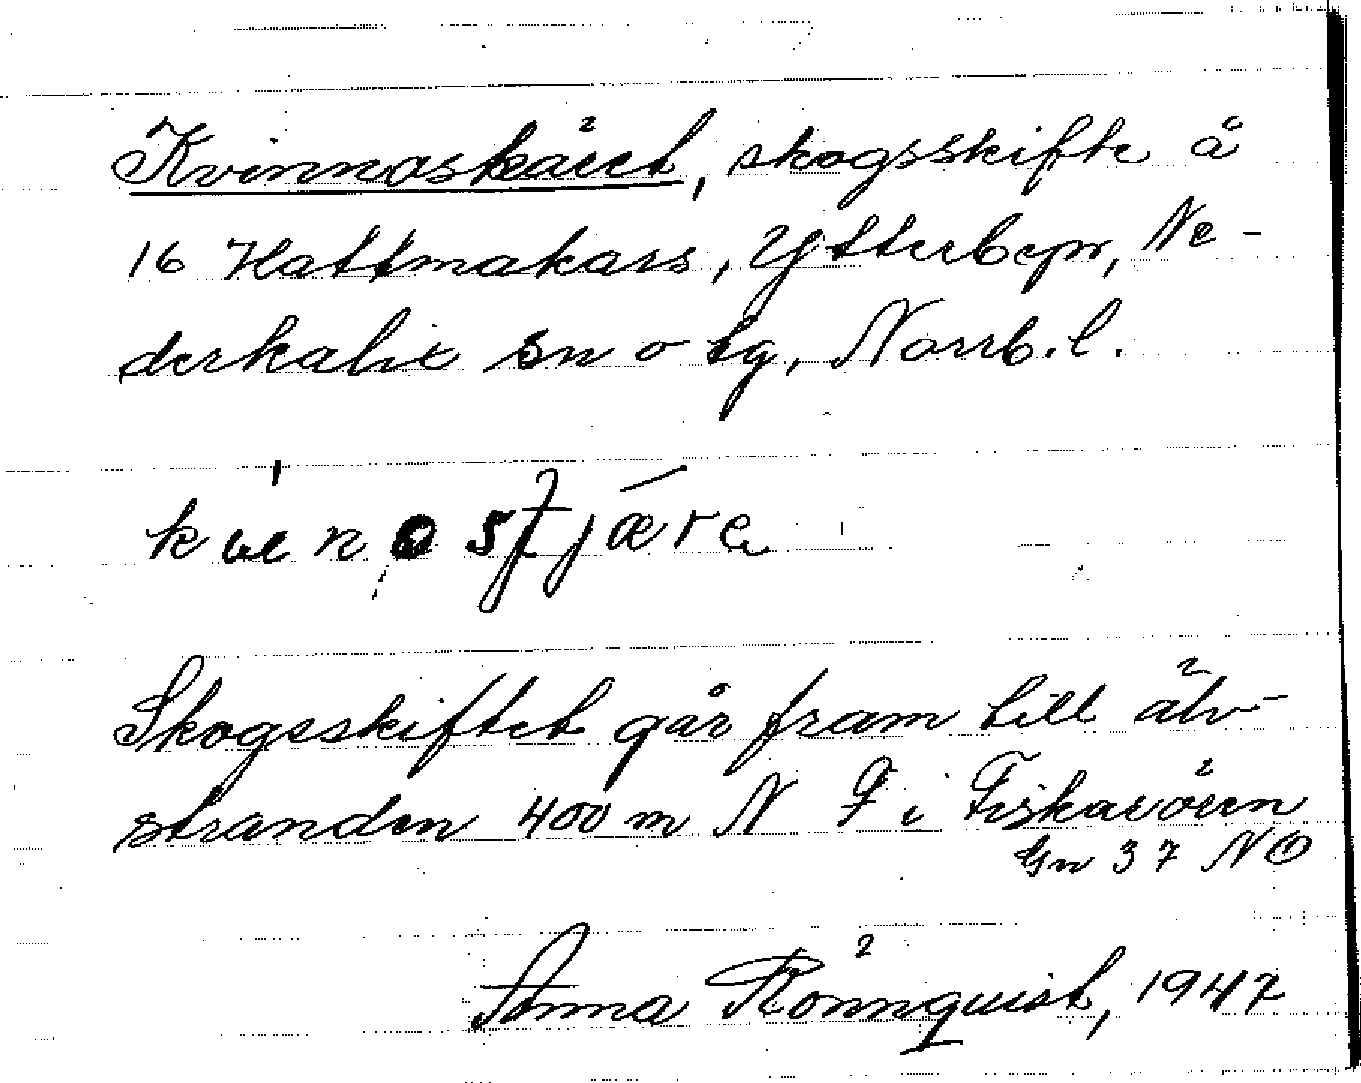 Kvinnoskäret, skogsskifte å
16 Hattmakars, Ytterbyn, Ne-
derkalix sn o tg, Norrb. l.
Skogsskiftet går fram till älv-
stranden 400 m N F i Fiskaröern
Gn 37 NO
Anna Rönnquist, 1947